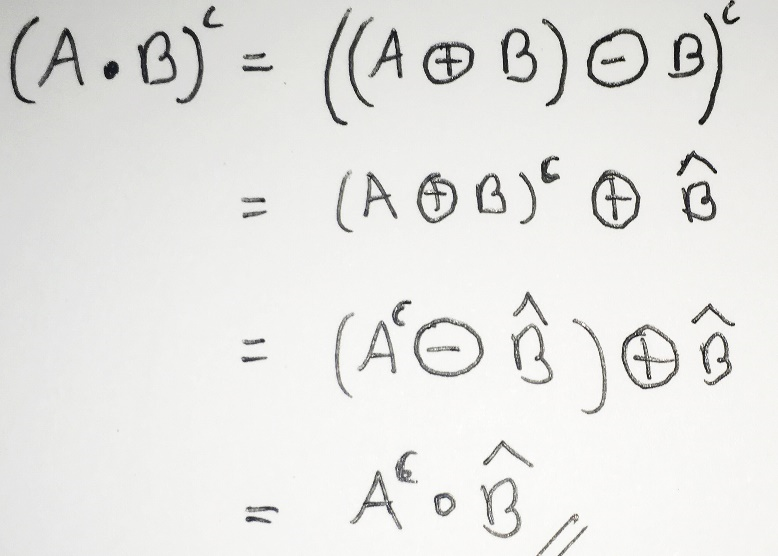 (A • B)ᶜ = ((A ⊕ B) ⊖ B)ᶜ
= (A ⊕ B)ᶜ ⊕ B̂
= (Aᶜ ⊖ B̂) ⊕ B̂
= Aᶜ ∘ B̂ //